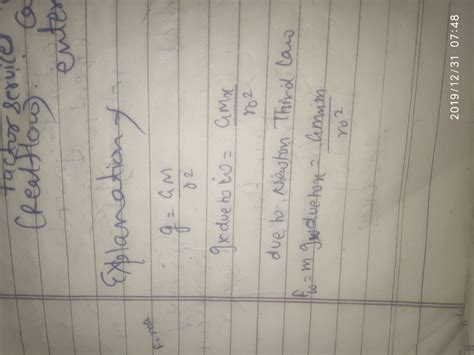 Factor services
(Real flow)
enter
Explanation
g = GM/r²
gx due to w = GMx/r0²
due to Newton Third Law
Fw = m gw due to x = 
F=ma
2019/12/31 07:48